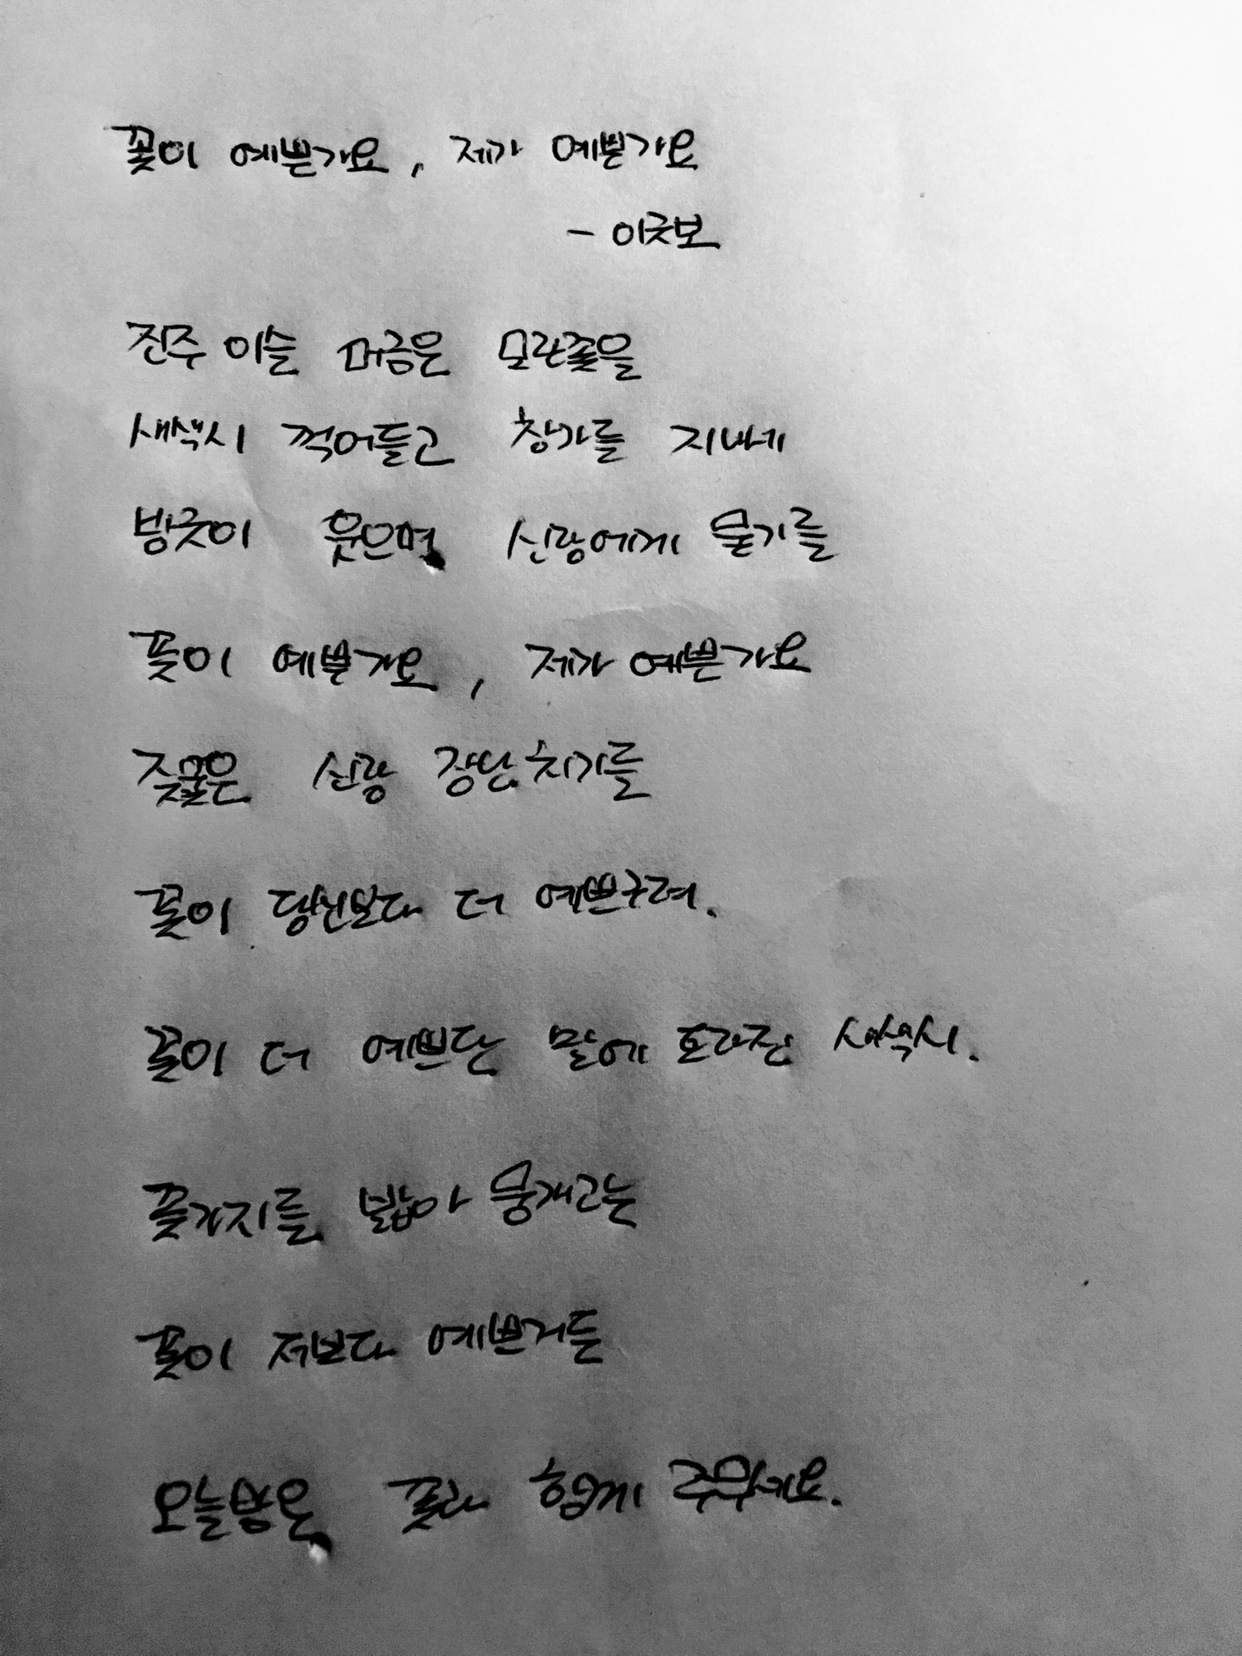 꽃이 예쁜가요, 제가 예쁜가요
- 이규보
진주 이슬 머금은 모란꽃을
새색시 꺽어들고 창가를 지나네
방긋이 웃으며 신랑에게 묻기를
꽃이 예쁜가요, 제가 예쁜가요
짖굳은 신랑 장난치기를
꽃이 당신보다 더 예쁘구려.
꽃이 더 예쁘단 말에 토라진 새색시.
꽃가지를 밟아 뭉개고는
꽃이 저보다 예쁘거든
오늘밤은 꽃과 함께 주무세요.